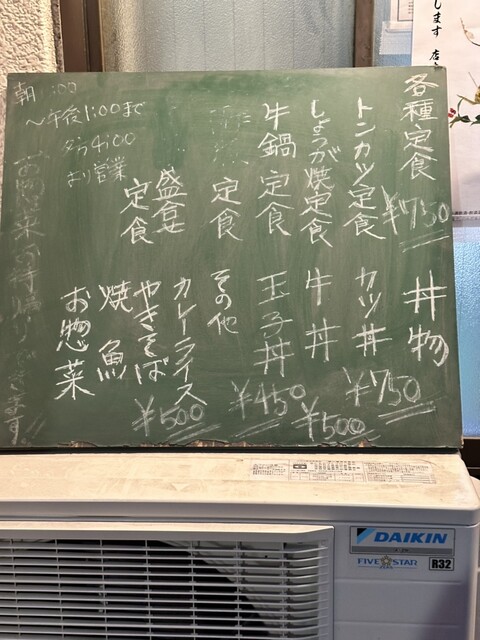 各種定食
¥750
トンカツ定食
しょうが焼定食
牛鍋定食
定食
盛宴定食
丼物
カツ丼
¥750
牛丼
¥500
玉子丼
¥450
その他
カレーライス
¥500
やきそば
焼魚
お惣菜
朝
:00
～午後1:00まで
夕方4:00
より営業
お惣菜お持帰りできます!!
します
DAIKIN
FIVE STAR
ZEAS
R32